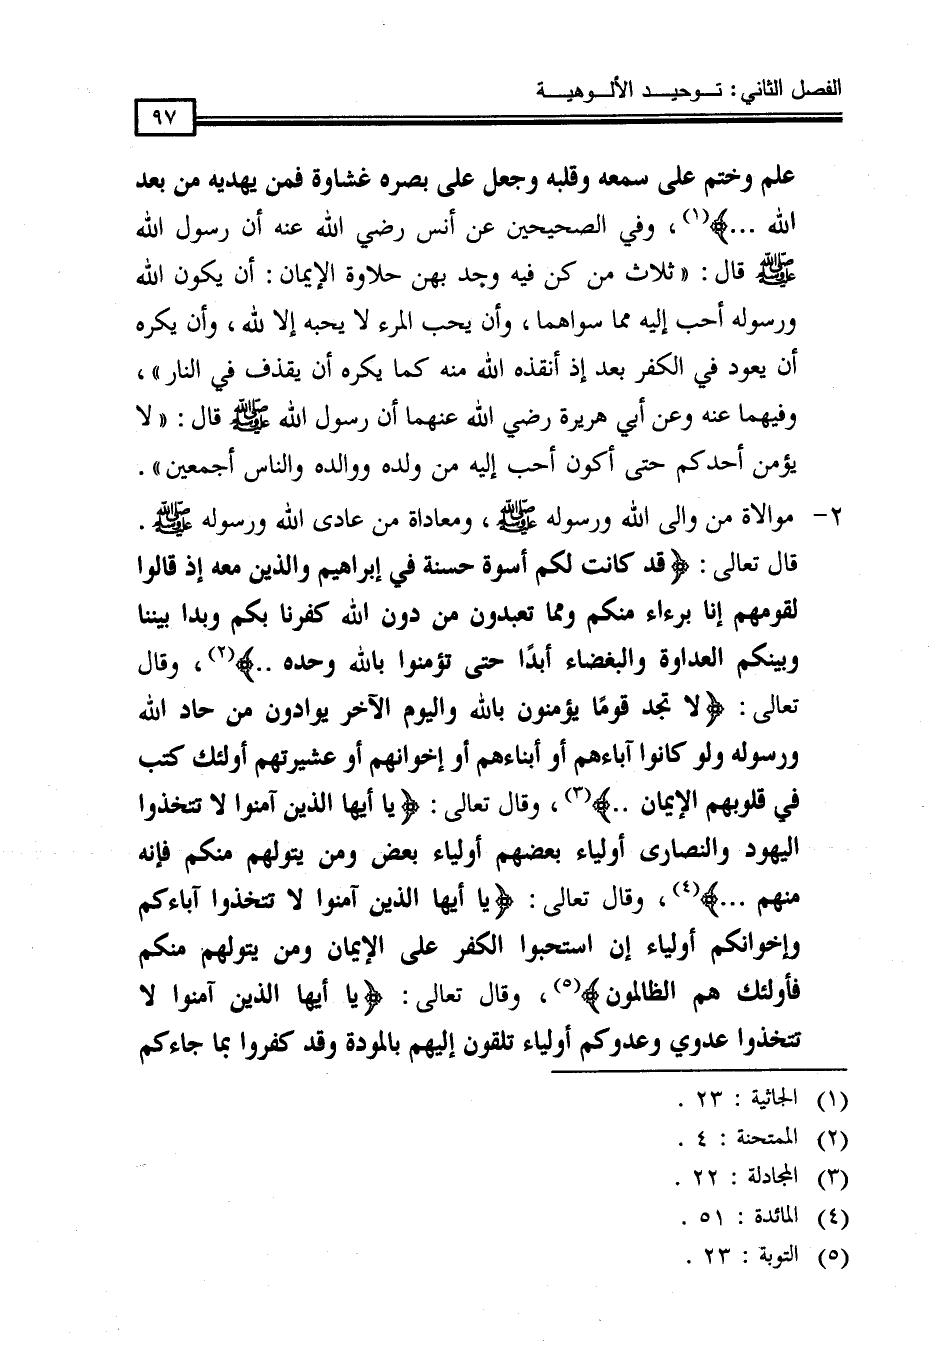 الفصل الثاني : توحيد الألوهية
٩٧
علم وختم على سمعه وقلبه وجعل على بصره غشاوة فمن يهديه من بعد
الله ...﴾(١) ، وفي الصحيحين عن أنس رضي الله عنه أن رسول الله
ﷺ قال : « ثلاث من كن فيه وجد بهن حلاوة الإيمان : أن يكون الله
ورسوله أحب إليه مما سواهما ، وأن يحب المرء لا يحبه إلا لله ، وأن يكره
أن يعود في الكفر بعد إذ أنقذه الله منه كما يكره أن يقذف في النار » ،
وفيهما عنه وعن أبي هريرة رضي الله عنهما أن رسول الله ﷺ قال : « لا
يؤمن أحدكم حتى أكون أحب إليه من ولده ووالده والناس أجمعين » .
٢- موالاة من والى الله ورسوله ﷺ ، ومعاداة من عادى الله ورسوله ﷺ .
قال تعالى : ﴿قد كانت لكم أسوة حسنة في إبراهيم والذين معه إذ قالوا
لقومهم إنا برءاء منكم ومما تعبدون من دون الله كفرنا بكم وبدا بيننا
وبينكم العداوة والبغضاء أبدًا حتى تؤمنوا بالله وحده ..﴾(٢) ، وقال
تعالى : ﴿لا تجد قومًا يؤمنون بالله واليوم الآخر يوادون من حاد الله
ورسوله ولو كانوا آباءهم أو أبناءهم أو إخوانهم أو عشيرتهم أولئك كتب
في قلوبهم الإيمان ..﴾(٣) ، وقال تعالى : ﴿يا أيها الذين آمنوا لا تتخذوا
اليهود والنصارى أولياء بعضهم أولياء بعض ومن يتولهم منكم فإنه
منهم ...﴾(٤) ، وقال تعالى : ﴿يا أيها الذين آمنوا لا تتخذوا آباءكم
وإخوانكم أولياء إن استحبوا الكفر على الإيمان ومن يتولهم منكم
فأولئك هم الظالمون﴾(٥) ، وقال تعالى : ﴿يا أيها الذين آمنوا لا
تتخذوا عدوي وعدوكم أولياء تلقون إليهم بالمودة وقد كفروا بما جاءكم
(١) الجاثية : ٢٣ .
(٢) الممتحنة : ٤ .
(٣) المجادلة : ٢٢ .
(٤) المائدة : ٥١ .
(٥) التوبة : ٢٣ .